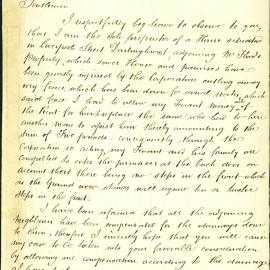 Gentlemen
I respectfully beg leave to observe to you,
that, I am the Sole proprietor of a House situated
in Liverpool Street Darlinghurst adjoining Mr Hood's
Property, which since House and premises have
been greatly injured by the Corporation cutting away
my fence, which has been down for several weeks, which
said fence I had to allow my Tenant money out of
the Rent for him to replace the same, who had to hire
another man to assist him thereby amounting to the
Sum of Two pounds, consequently through the
Corporation so acting, my Tenant and his family are
compelled to enter the premises at the back door on
account there being no steps in the front which
as the Ground now stands will require ten or twelve
steps in the front.
I have been informed that all the adjoining
neighbours have been compensated for the damages done
to them, therefore I sincerely hope that you will cause
my case to be taken into your favorable consideration
by allowing me compensation according to the damage